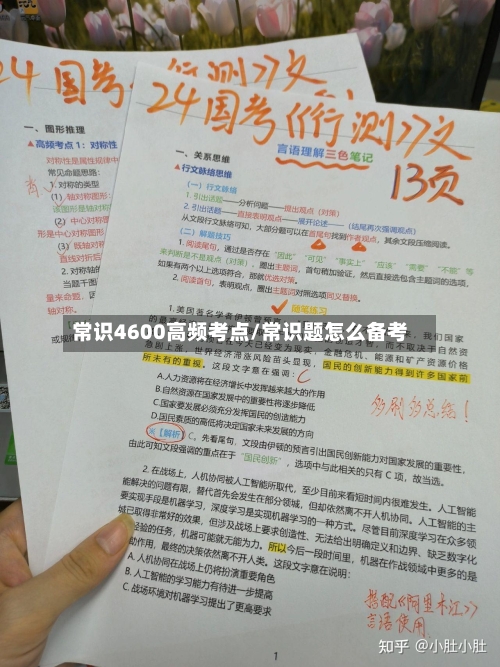 24国考《行测》文
24国考《行测》文
13页
一、图形推理
▲高频考点1:对称性
对称性是属性规律中
常见命题思路:
1.对称的类型
(1)轴对称图形:
(2)中心对称
形是中心对称图形
(3)既轴对称
直线对折后
2.对称轴的
当题干图
量来命题,
轴对称。
言语理解三色笔记
一、关系思维
▲行文脉络思维
(一)行文脉络
1.引出话题——分析问题——提出观点(对策)
2.引出话题——直接表明观点——展开论述——(结尾再次强调观点)
从文段行文脉络可知,大部分题可以在首尾句找到作者观点,其余文段压缩阅读。
(二)解题技巧
1.阅读尾句。通过是否存在“因此”“可见”“事实上”“应该”“需要”“不能”等
来判断是不是观点(对策),圈出主题词,首句稍加验证,然后直接选包含主题词的选项。
如果有两个以上选项符合,那就优选对策。
2.阅读首句,表明观点,圈出主题词对照选项同义替换。
随笔练习
1.美国著名学者伊顿曾预言
我们国家
常识4600高频考点/常识题怎么备考
急剧上涨,世界经济滞涨风险苗头显现,国民的创新能力得到许多国家前
所未有的重视。这段文字意在强调: C
A.人力资源将在经济增长中发挥越来越大的作用
B.自然资源在国家发展中的重要性将逐步降低
C.国家要发展必须充分发挥国民的创造能力
D.国民素质的高低将决定国家未来发展的方向
多刷多总结!
【解析】C,先看尾句,文段由伊顿的预言引出国民创新能力对国家发展的重要性,
由此可知文段强调的重点在于“国民创新”,选项中与此相关的只有 C 项,故当选。
2.在战场上,人机协同被人工智能所取代,至少目前来看短时间内很难发生。人工智能
能解决的问题有限,替代首先会发生在部分领域,但却依然离不开人机协同。人工智能的主
要实现手段是机器学习,深度学习是实现机器学习的一种方式。尽管目前深度学习在众多领
域已取得非常好的效果,但涉及战场上要求创造性、无法给出明确定义和边界、缺乏数字化
经验的任务,机器可能就无能为力。所以今后一段时间里,机器在作战领域中更多的是
动作用,最终的决策依然离不开人类。这段文字意在说明:
A.人机协同在战场上仍将扮演重要角色
B.人工智能的学习能力有待进一步提高
C.战场环境对机器学习提出了更高要求
搭配《阿里木江》
言语使用
1
知乎 @小肚小肚